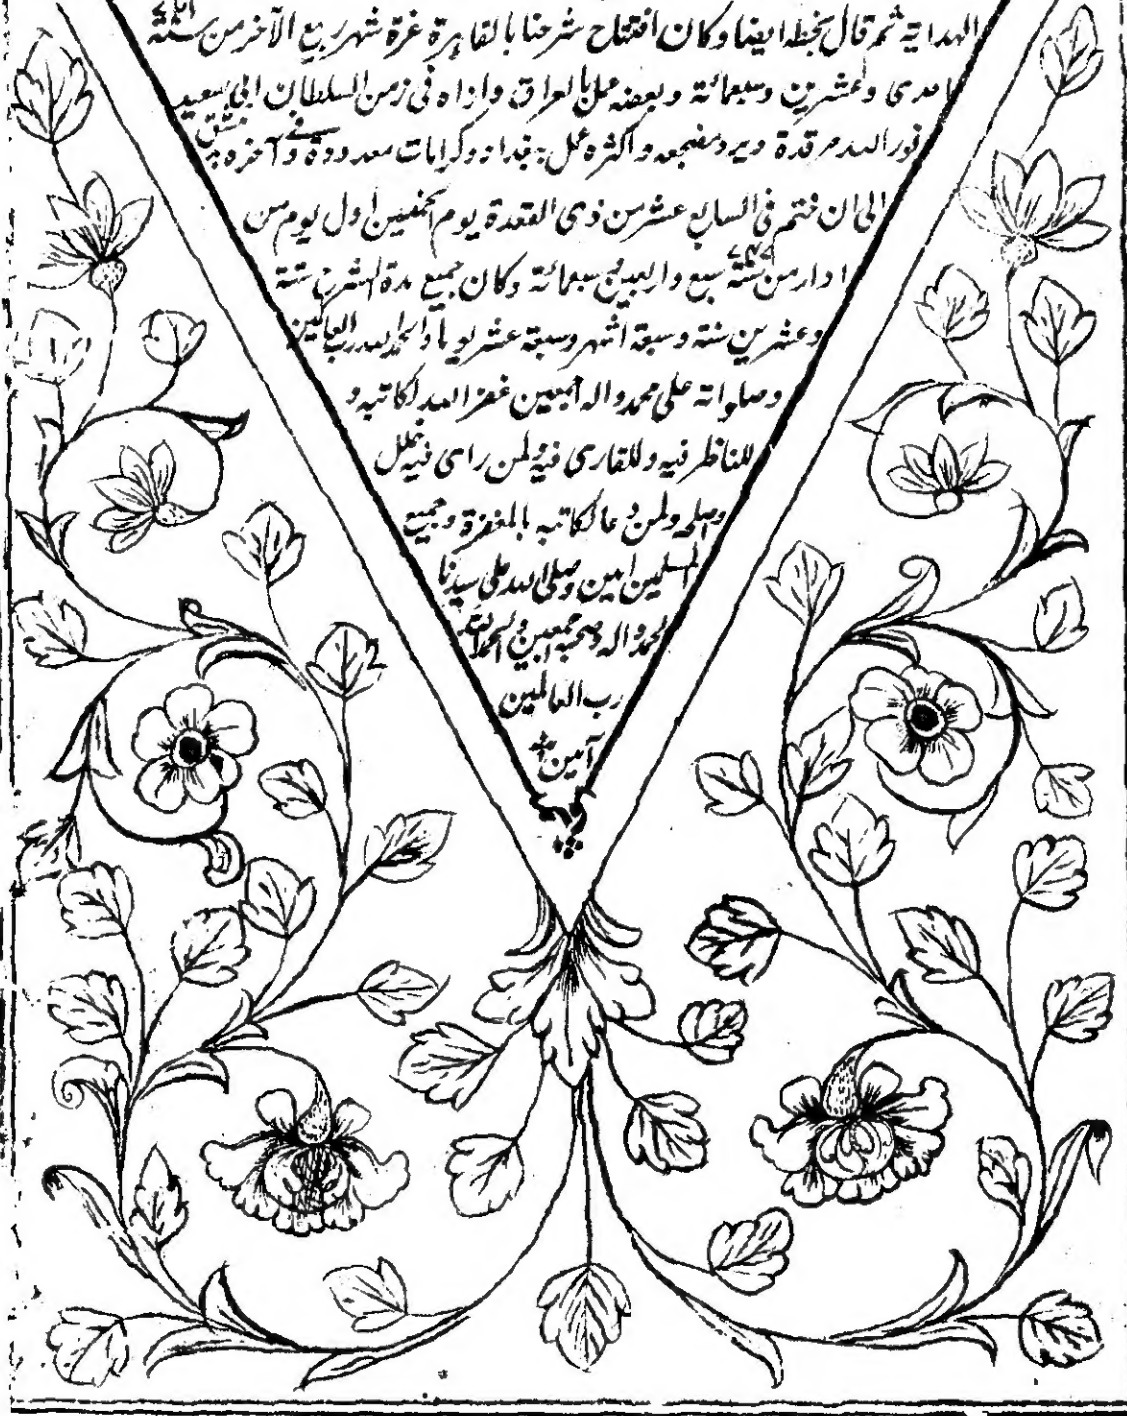 الهداية ثم قال بخطه ايضا وكان افتتاح شرحنا بالقاهرة غرة شهر ربيع الآخر من سنة
احدى وعشرين وسبعمائة وبعضه عمل بالعراق واراه فى زمن السلطان ابى سعيد
نور الله مرقده وبرد مضجعه واكثره عمل ببغداد وكرامات معدودة فى وآخره بدمشق
الى ان ختم فى السابع عشر من ذى القعدة يوم الخميس اول يوم من
ادار من سنة ٧٤٧ سبع واربعين سبعمائة وكان جميع مدة الشرح ستة
وعشرين سنة وسبعة اشهر وسبعة عشر يوما والحمد لله رب العالمين
وصلواته على محمد واله اجمعين غفر الله لكاتبه و
للناظر فيه وللقارى فيه ولمن راى فيه خلل
واصلحه ولمن دعا لكاتبه بالمغفرة وجميع
المسلمين امين وصلى الله على سيدنا
محمد واله وصحبه اجمعين والحمد لله
رب العالمين
آمين